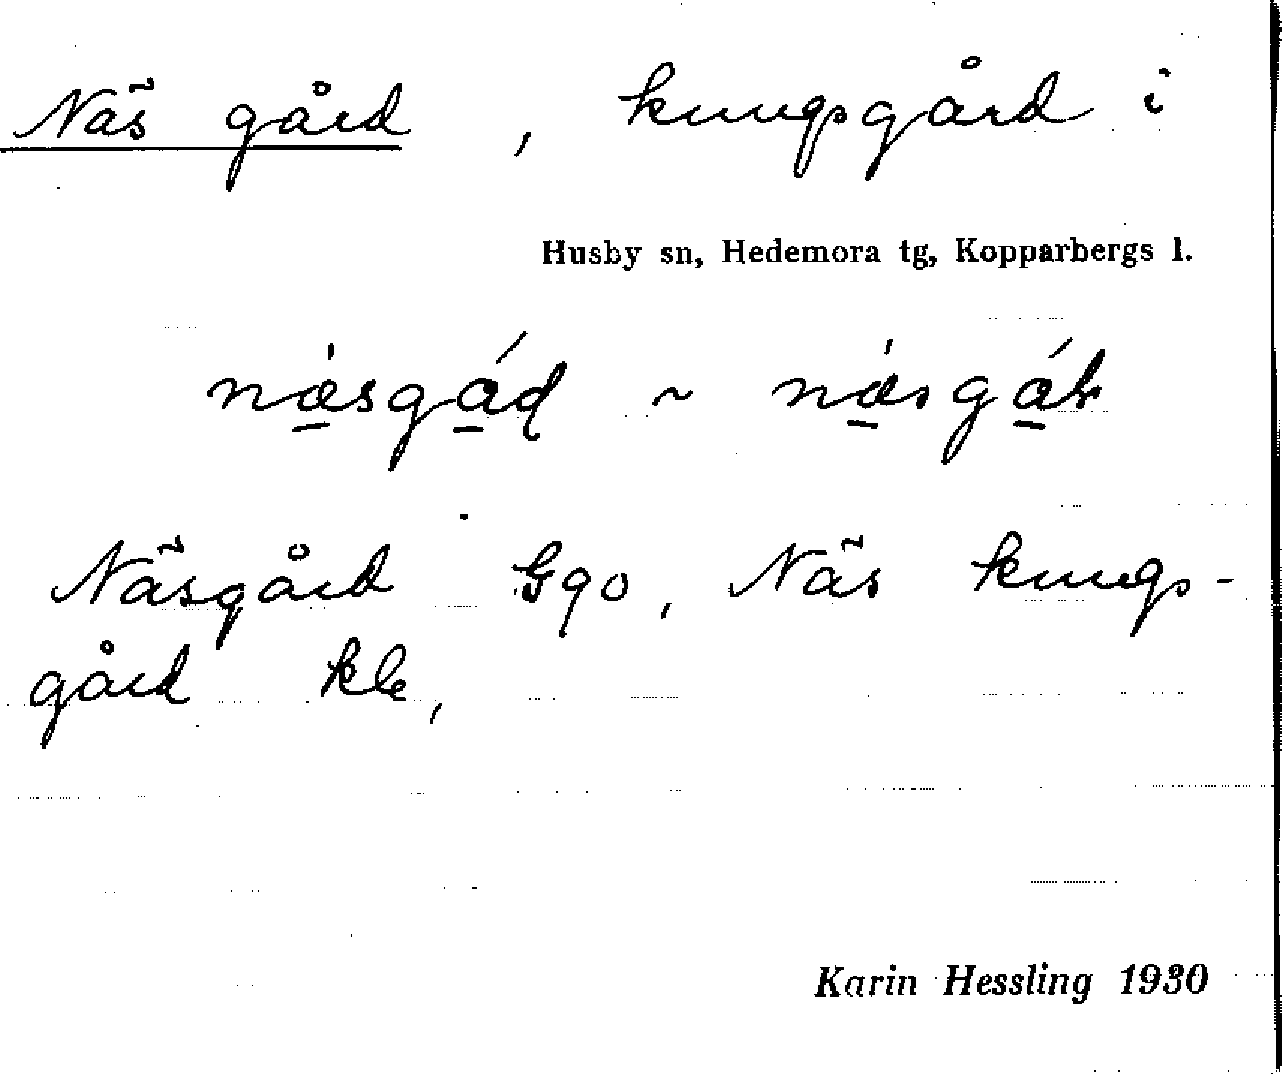 Näs gård, kungsgård i
Husby sn, Hedemora tg, Kopparbergs l.
~
Näsgård Gqo, Näs kungs-
gård kle,
Karin Hessling 1930